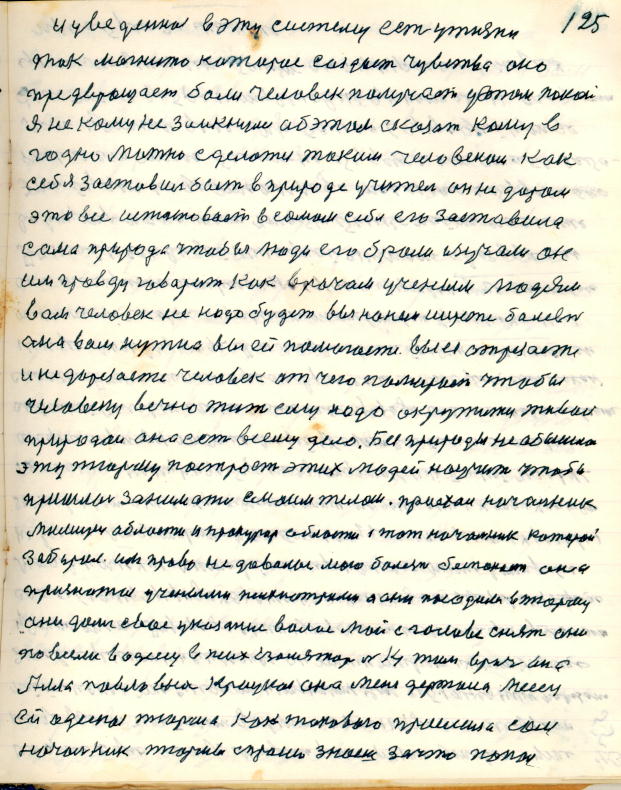 125
и уведенная в эту систему есть у жизни
так магнито которое создает чувства оно
предвращает боли человек получает у этом покой
Я не кому не заикнулся об этом сказат кому в
годно можно сделоти таким человеком как
себя заставил быт в природе учител он не даром
это все испытовает в самом себе его заставила
сама природа чтобы люди его брали изучали он
им правду говарит как врачам ученым людям
вам человек не надо будет вы на нем ищете болезн
она вам нужна вы ей помогаете вы ее отрезаете
и не дорезаете человек от чего помирает чтобы
человеку вечно жит ему надо окружити живой
природой она ест всему дело. Без природы не
эту тюрму построят этих людей научит чтобы
пришлос занимати с моим телом. приехал началник
милиции области и прокурор области и тот началник которой
забирал. им право не довалос мого болезн она
признатая учеными психиатрами а они посодили в тюрму
они дали свое указание волос мой с голове снят они
повезли в одессу в псих изолятор № 14 там врач она
Алла павловна она меня держала месец
ей одеская тюрма как такового пришелца сам
началник тюрмы спросил знаеш за что попал